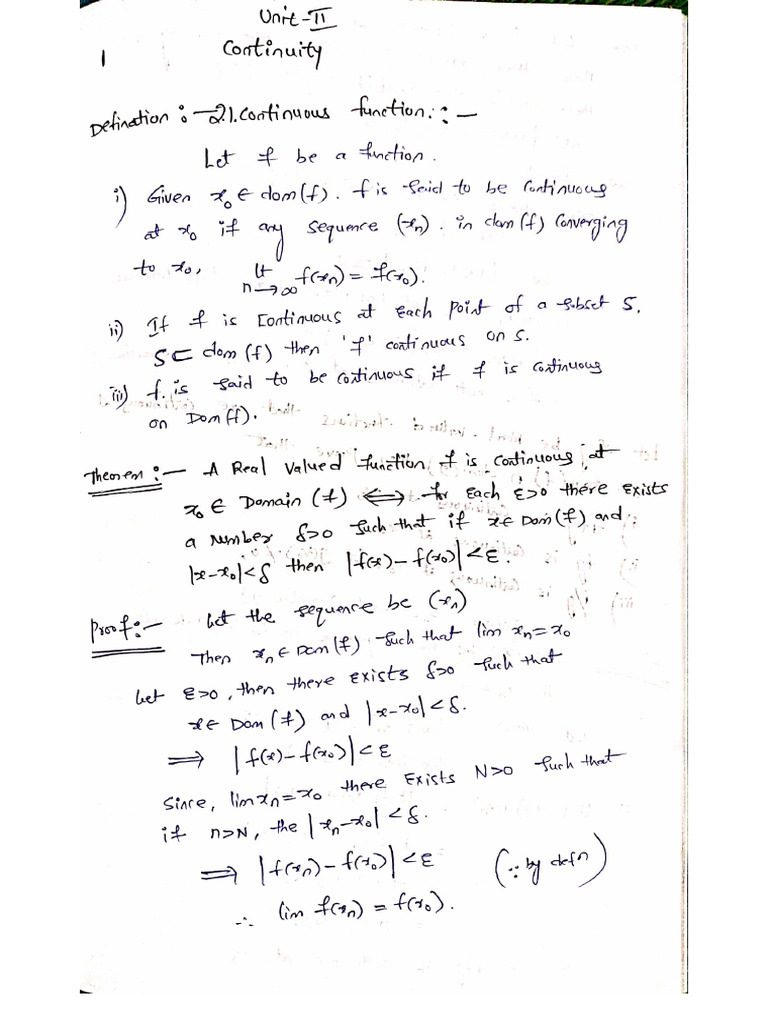 Unit-II
1 Continuity
Defination :- 2.1.Continuous function :-
Let f be a function.
i) Given x₀ ∈ dom(f). f is said to be Continuous
at x₀ if any sequence (xₙ). in dom(f) Converging
to x₀, lt n→∞ f(xₙ) = f(x₀).
ii) If f is Continuous at each point of a subset S,
S ⊂ dom(f) then 'f' continuous on S.
iii) f. is said to be continuous if f is continuous
on Dom(f).
Theorem :- A Real Valued function f is continuous at
x₀ ∈ Domain (f) ⟺ for each ε>0 there exists
a number δ>0 such that if x∈ Dom(f) and
|x-x₀|<δ then |f(x)-f(x₀)|<ε.
Proof :- Let the sequence be (xₙ)
Then xₙ∈ Dom(f) such that lim xₙ=x₀
Let ε>0, then there exists δ>0 such that
x∈ Dom(f) and |x-x₀|<δ.
⟹ |f(x)-f(x₀)|<ε
Since, lim xₙ=x₀ there exists N>0 such that
if n>N, the |xₙ-x₀|<δ.
⟹ |f(xₙ)-f(x₀)|<ε (∵ by defn)
∴ lim f(xₙ) = f(x₀).